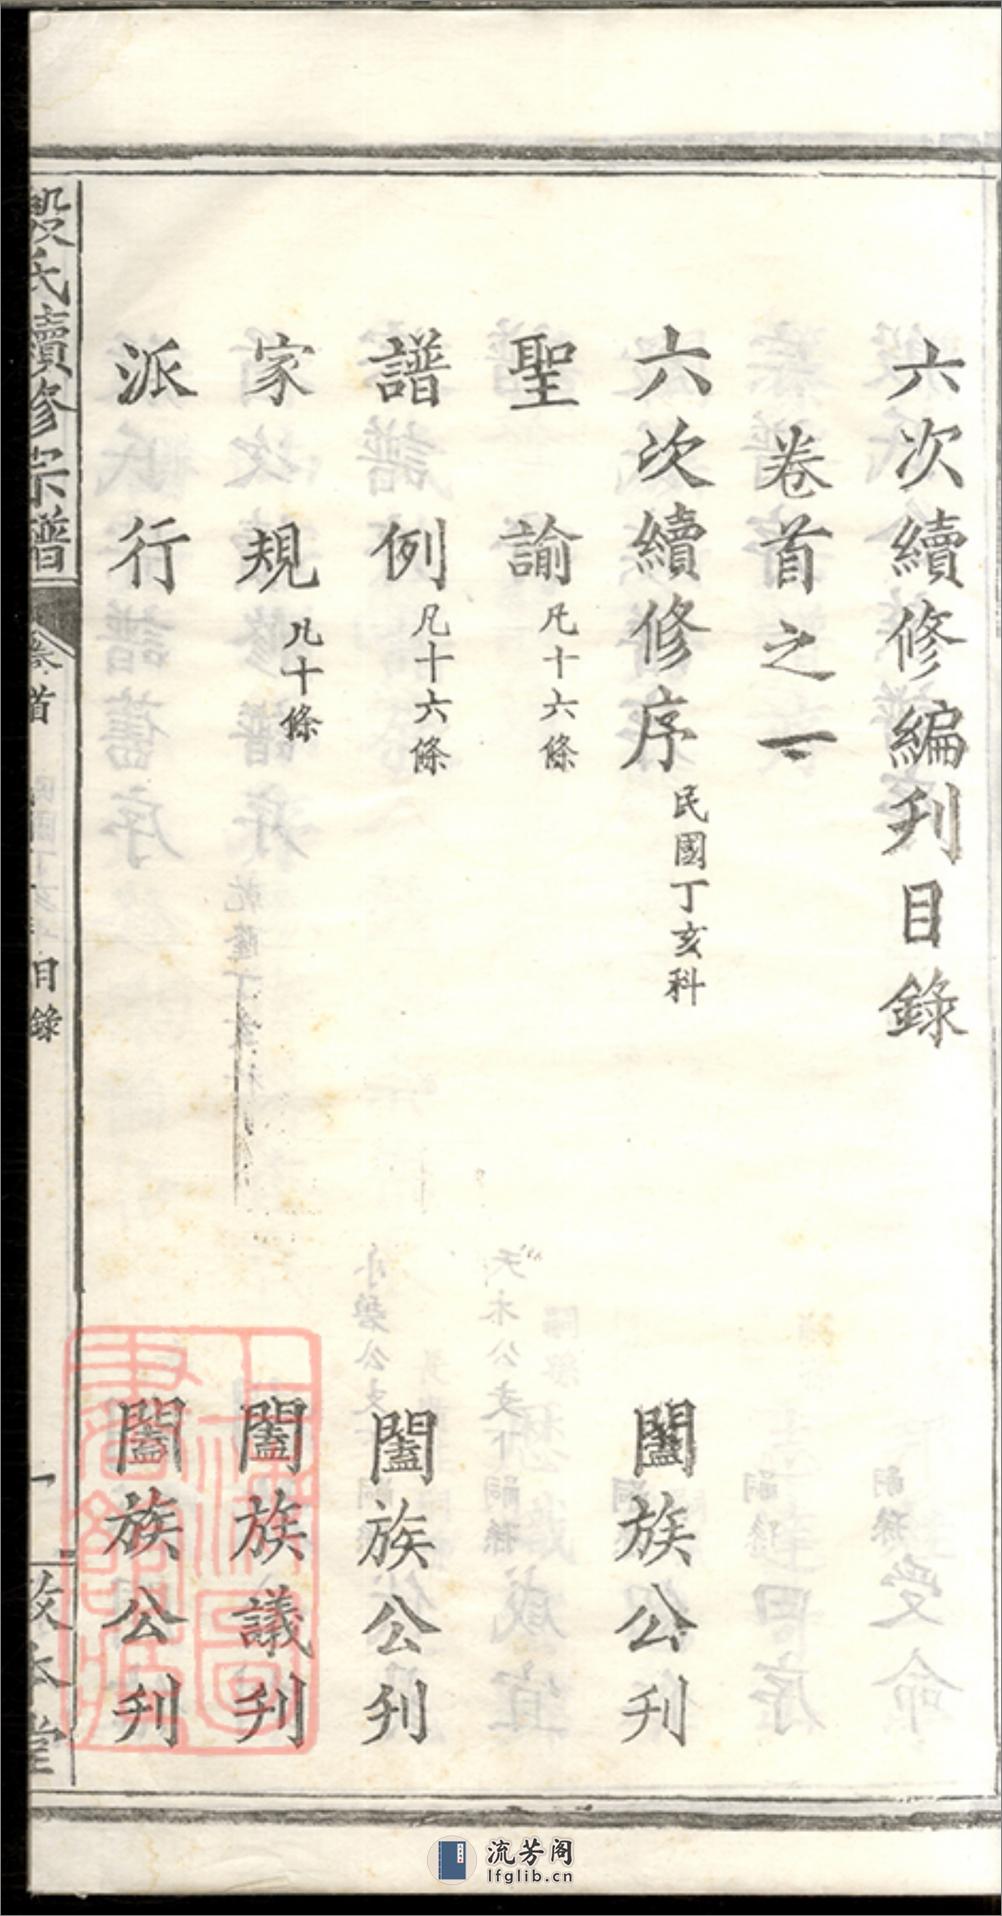 六次續修編刋目錄
卷首之一
六次續修序 民國丁亥科 闔族公刋
聖諭 凡十六條
譜例 凡十六條 闔族公刋
家規 凡十條 闔族議刋
派行 闔族公刋
段氏續修宗譜 卷首 目錄 一 敦本堂
上海圖書館藏
流芳阁
lfglib.cn